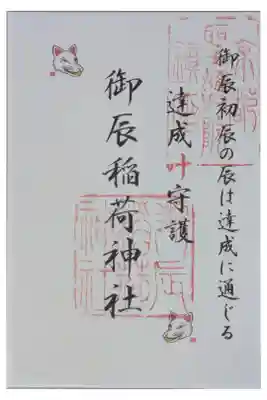 御辰初辰の辰は達成に通じる
達成叶守護
御辰稲荷神社